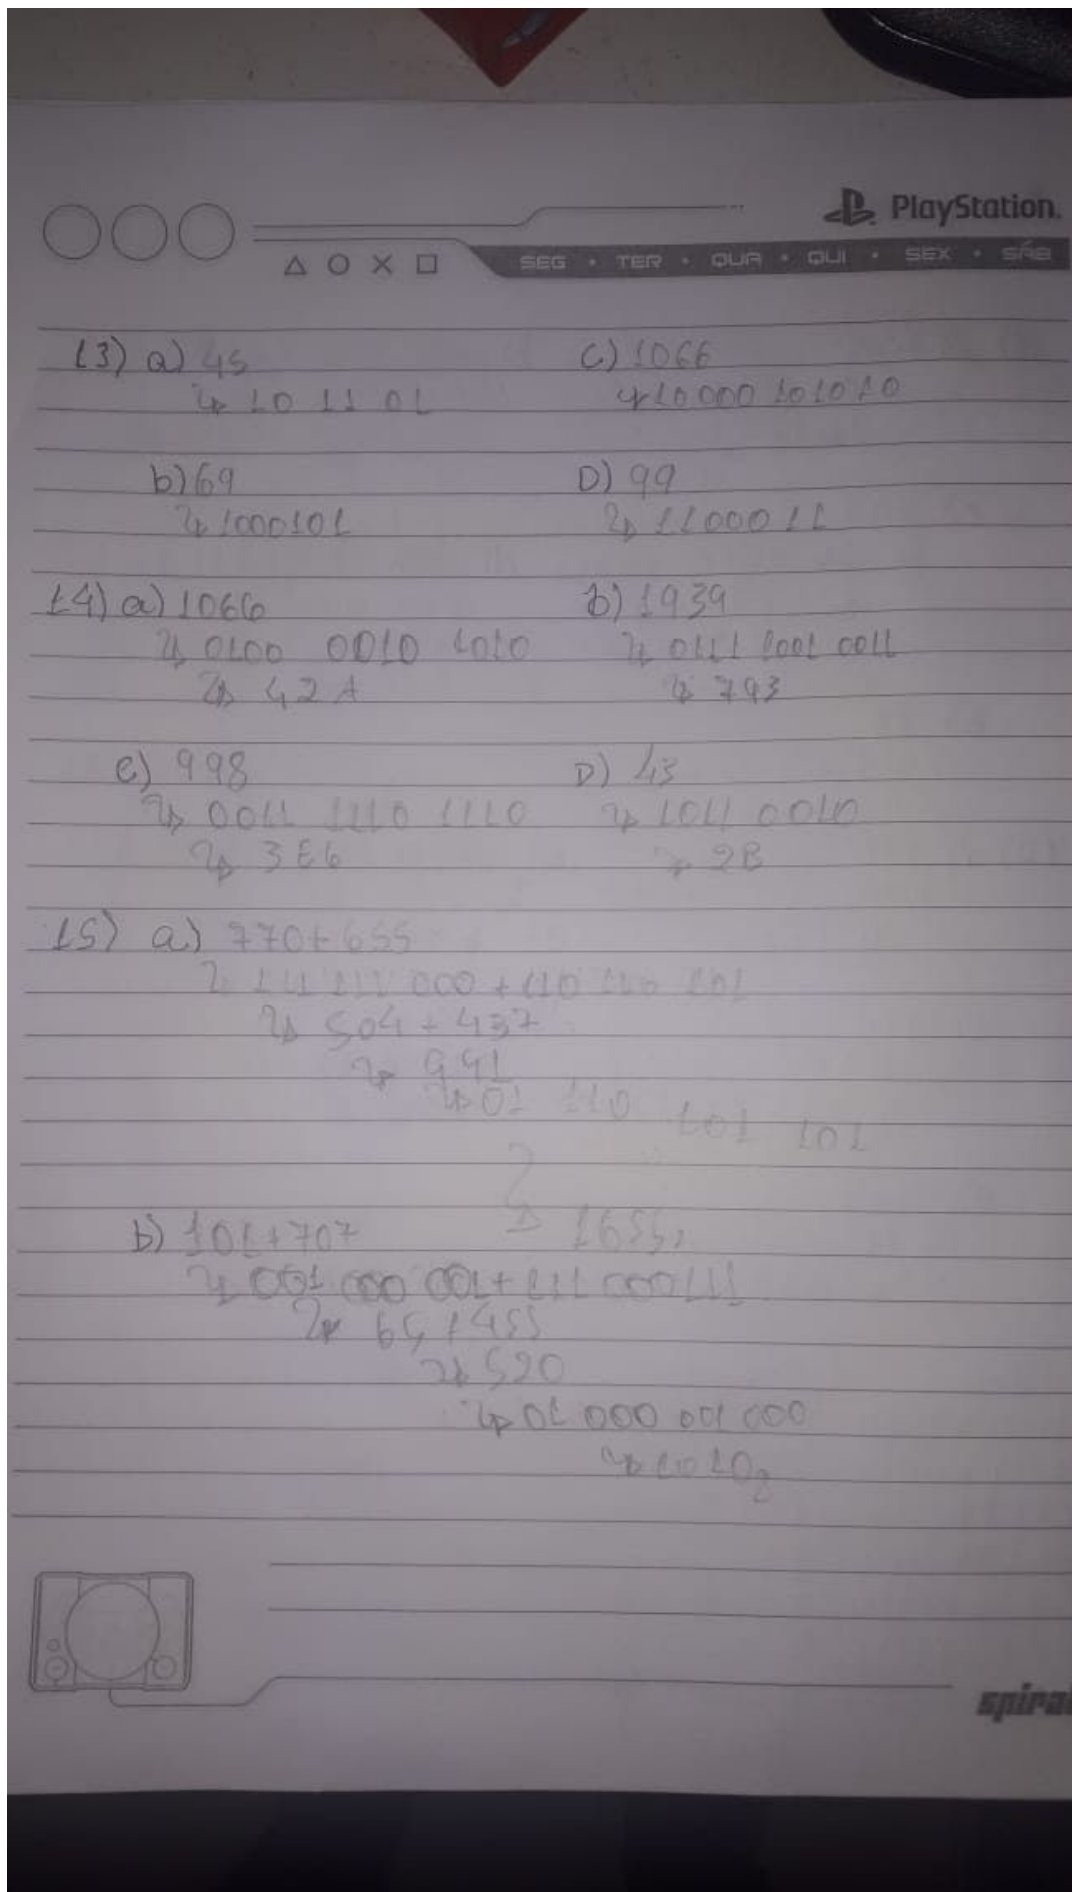 PlayStation.
SEG • TER • QUA • QUI • SEX • SÁB
13) a) 45
↳ 10 11 01
C) 1066
↳ 10000 101010
b) 69
↳ 1000101
D) 99
↳ 1100011
14) a) 1066
↳ 0100 0010 1010
↳ 42A
b) 1939
↳ 0111 1001 0011
↳ 793
c) 998
↳ 0011 1110 1110
↳ 3E6
D) 43
↳ 1011 0010
↳ 2B
15) a) 770+655
↳ 111 111 000 + 110 110 101
↳ 504 + 437
↳ 941
↳ 01 110 101 101
↳ 1655
b) 101+707
↳ 001 000 001 + 111 000111
↳ 65 + 455
↳ 520
↳ 01 000 001 000
↳ 1010₈
spiral